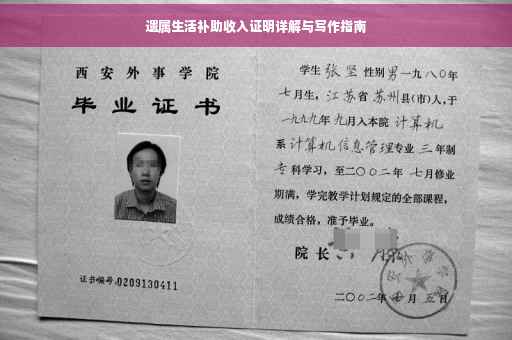 遗属生活补助收入证明详解与写作指南
西安外事学院
毕业证书
证书编号:0209130411
学生 张坚 性别 男 一九八〇年
七月生，江苏省苏州县(市)人，于
一九九九年 九月入本院 计算机
系 计算机信息管理专业 三 年制
专科学习，至二〇〇二年 七月修业
期满，学完教学计划规定的全部课程，
成绩合格，准予毕业。
院长
二〇〇二年 七月 五日